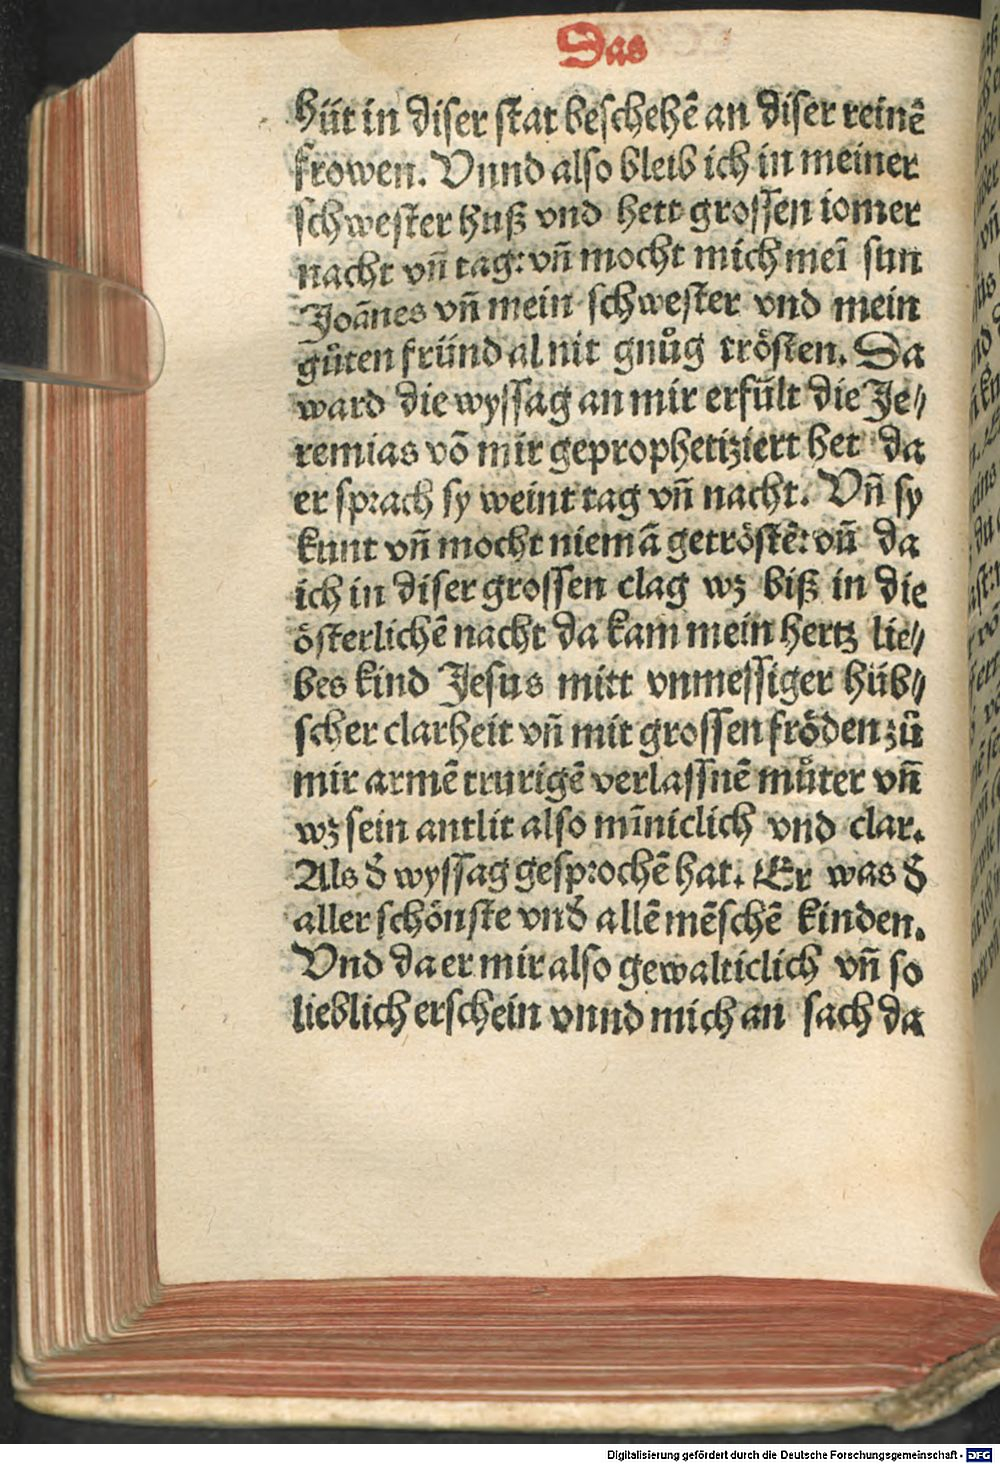 Das
hüt in diser stat beschehē an diser reinē
frowen. Vnnd also bleib ich in meiner
schwester huß vnd hett grossen iomer
nacht vñ tag: vñ mocht mich meī sun
Joānes vñ mein schwester vnd mein
gůten fründ al nit gnůg trösten. Da
ward die wyssag an mir erfült die Je⸗
remias vō mir geprophetiziert het da
er sprach sy weint tag vñ nacht. Vñ sy
kunt vñ mocht niemā getröstē: vñ da
ich in diser grossen clag wz biß in die
österlichē nacht da kam mein hertz lie⸗
bes kind Jesus mitt vnmessiger hüb⸗
scher clarheit vñ mit grossen fröden zů
mir armē trurigē verlassnē můter vñ
wz sein antlit also mīniclich vnd clar.
Als đ wyssag gesprochē hat. Er was đ
aller schönste vnđ allē mēschē kinden.
Vnd da er mir also gewalticlich vñ so
lieblich erschein vnnd mich an sach da
Digitalisierung gefördert durch die Deutsche Forschungsgemeinschaft - DFG